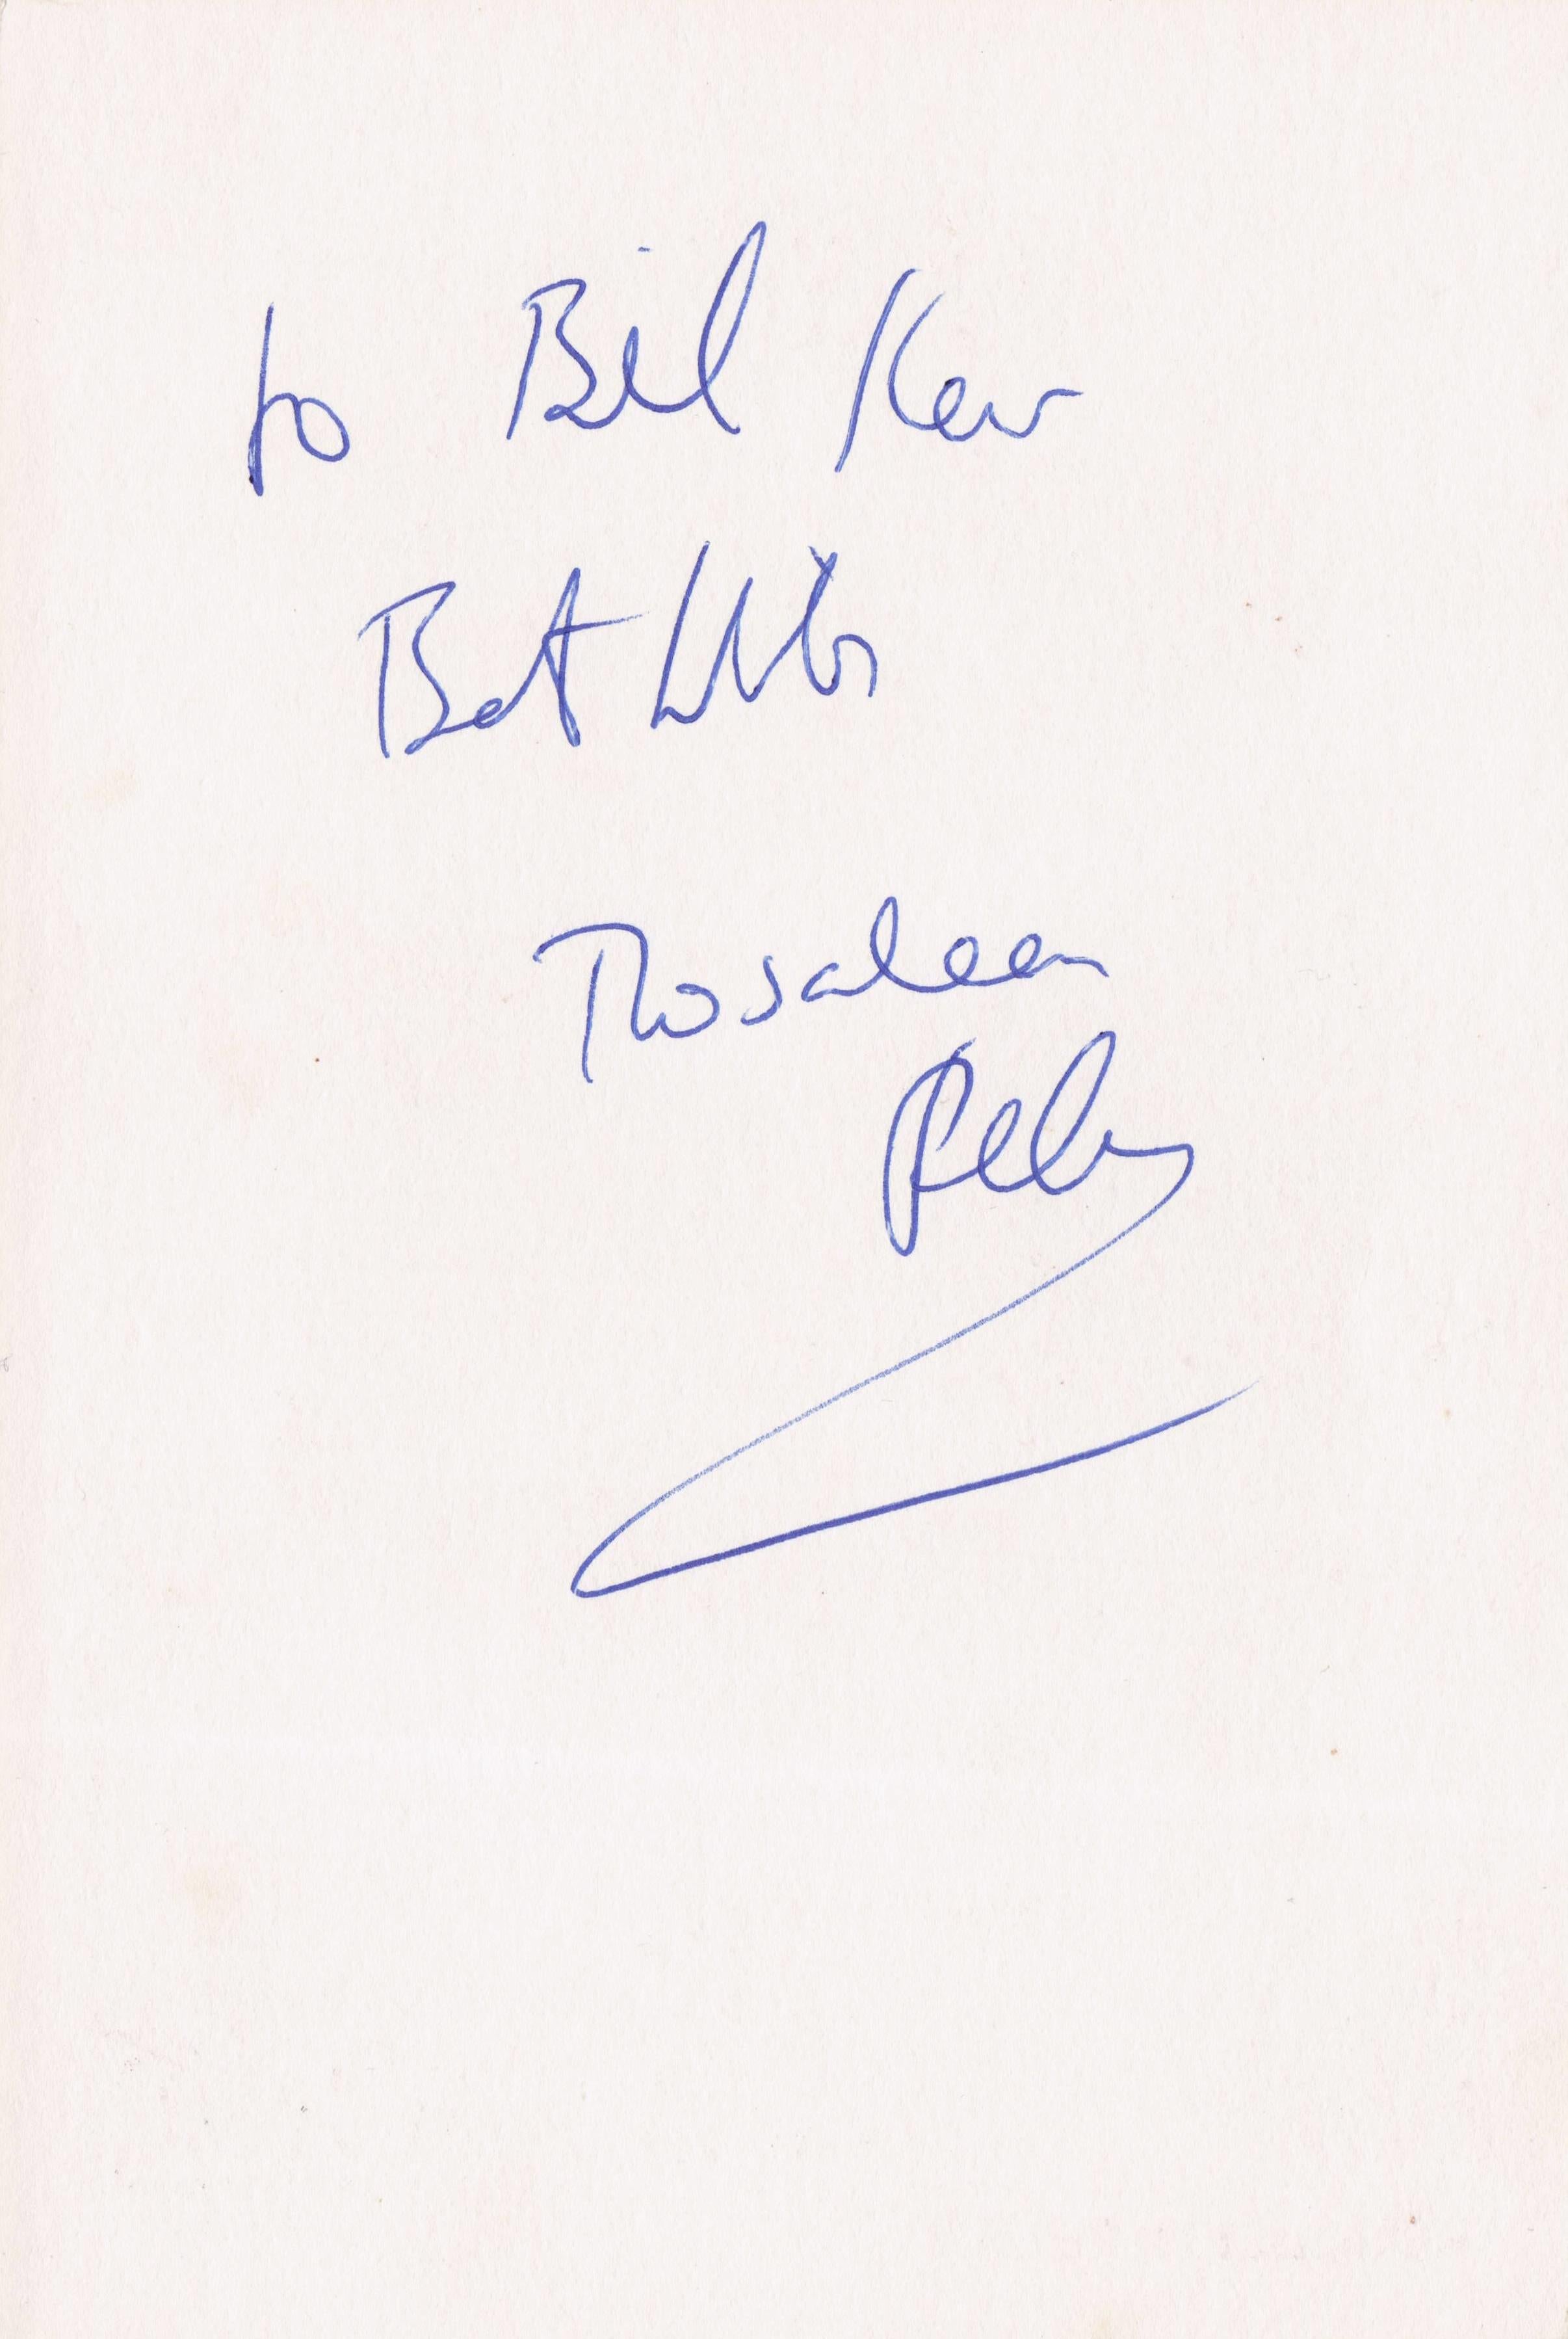 to Bill Kerr
Best Wishes
Rosaleen